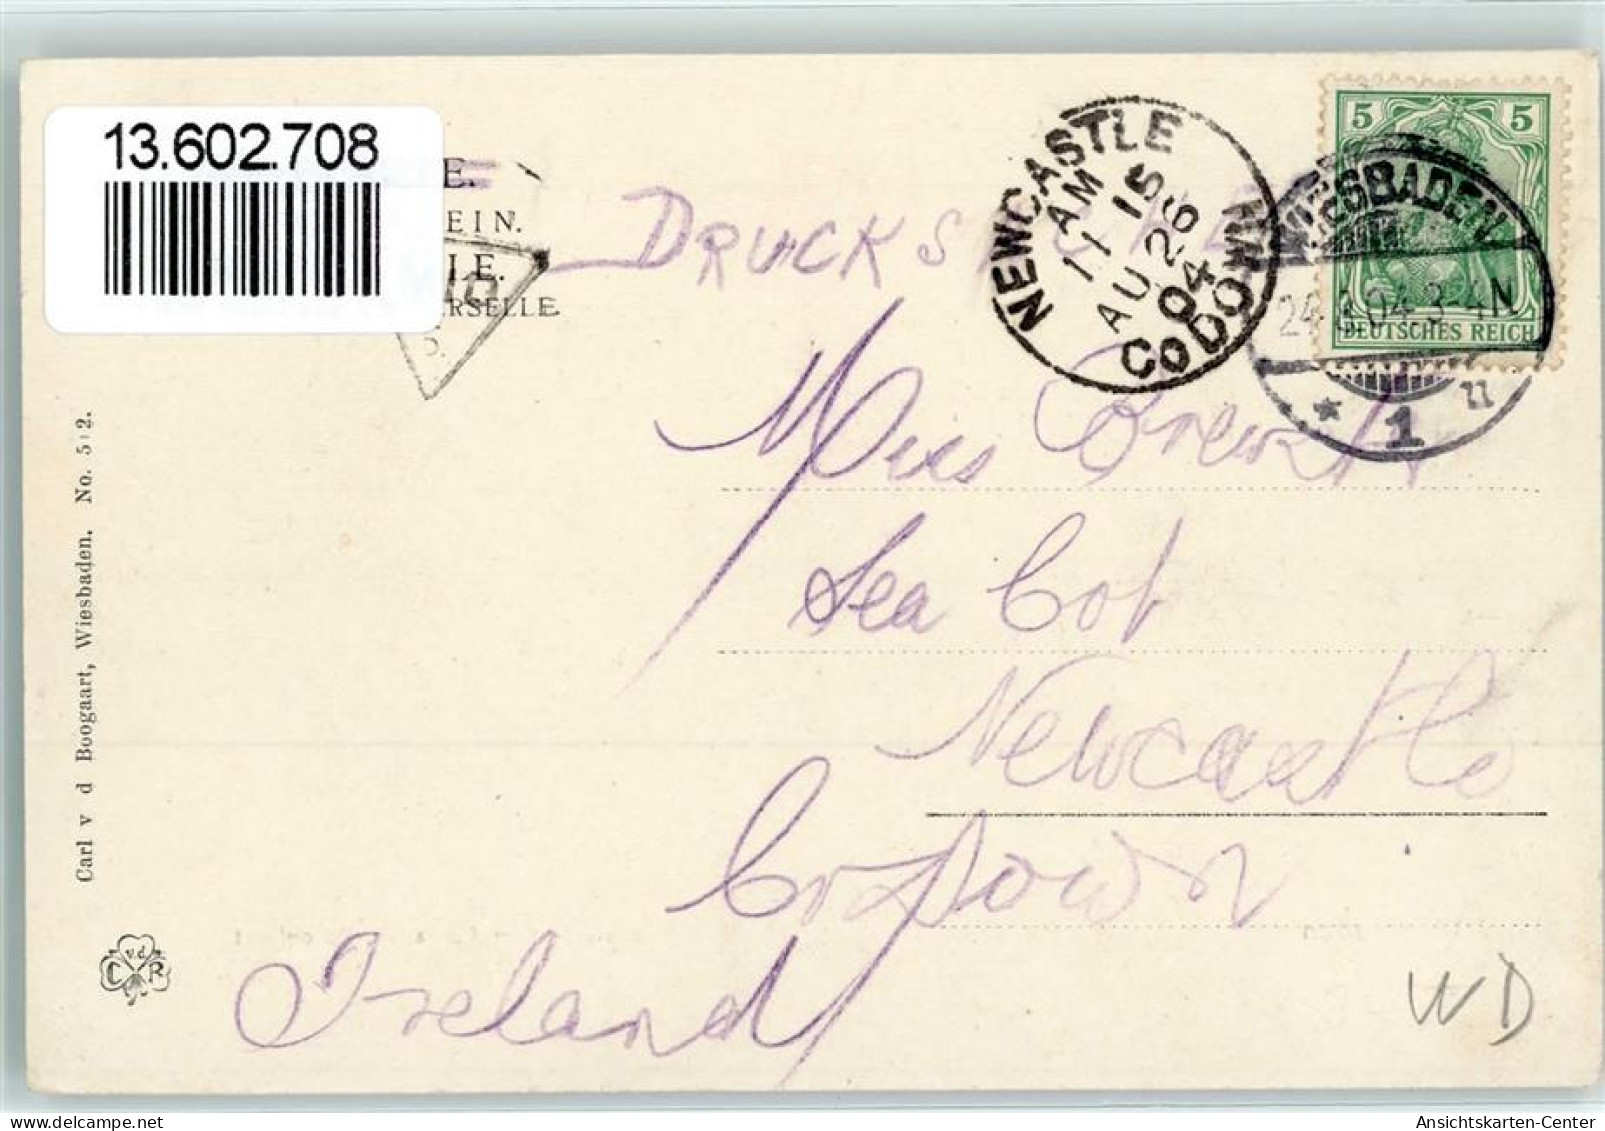 13.602.708
E.
EIN.
IE.
ERSELLE
DRUCKS
NEWCASTLE
11 15 AM
AU 26
04
Co DOWN
5 5
DEUTSCHES REICH
WIESBADEN
24. 04. 3-4N
* 1 n
Miss
Sea Cot
Newcastle
Co Down
Ireland
WD
Carl v d Boogaart, Wiesbaden. No. 512.
C v.d. R
Ansichtskarten-Center